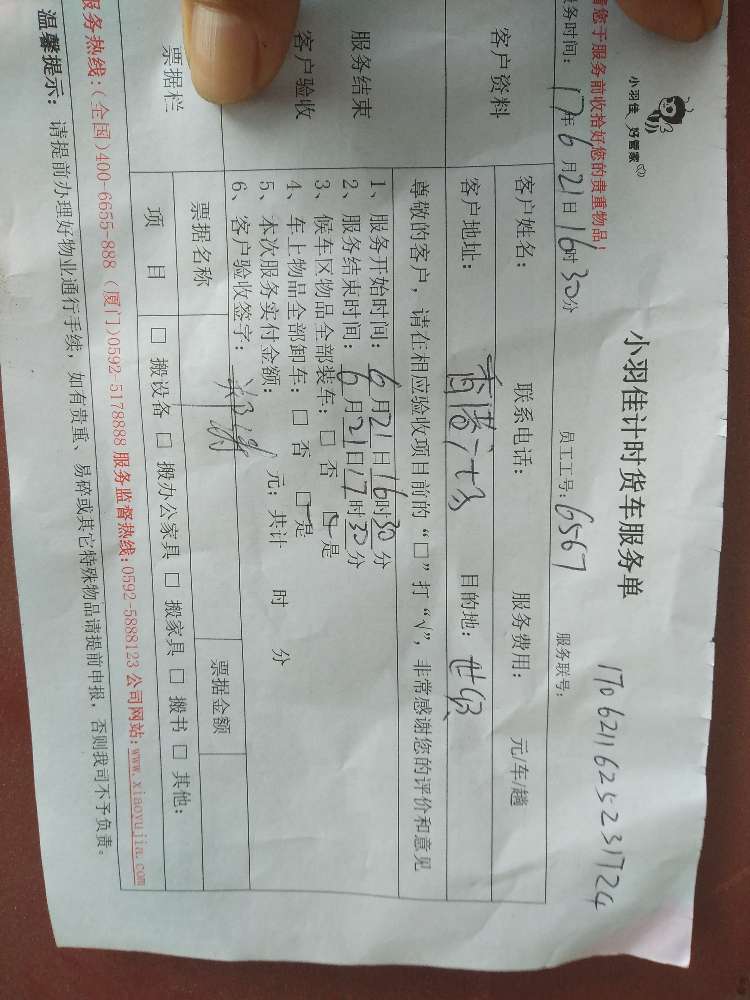 小羽佳 好管家
小羽佳计时货车服务单
1706211625231724
请您于服务前收拾好您的贵重物品!
服务时间: 17年6月21日16时30分 员工工号: 6567 服务联号:
客户资料 客户姓名: 联系电话: 服务费用: 元/车/趟
客户地址: 目的地: 世纪
尊敬的客户, 请在相应验收项目前的“□”打“√”, 非常感谢您的评价和意见
服务结束
客户验收
1、服务开始时间: 6月21日16时30分
2、服务结束时间: 6月21日17时30分
3、候车区物品全部装车: □ 否 □ 是
4、车上物品全部卸车: □ 否 □ 是
5、本次服务实付金额: 元; 共计 时 分
6、客户验收签字:
票据栏 票据名称 票据金额
项 目 □ 搬设备 □ 搬办公家具 □ 搬家具 □ 搬书 □ 其他:
服务热线:(全国)400-6655-888 (厦门)0592-5178888 服务监督热线:0592-5888123 公司网站:www.xiaoyujia.com
温馨提示: 请提前办理好物业通行手续, 如有贵重、易碎或其它特殊物品请提前申报, 否则我司不予负责。